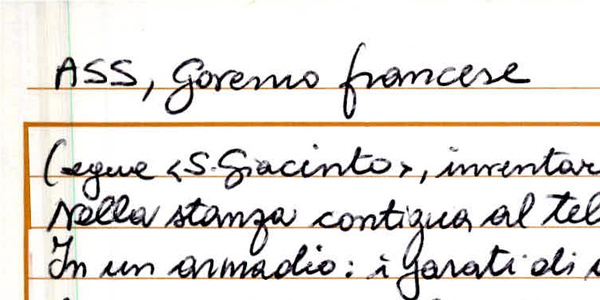 ASS, Governo francese
(segue <S. Giacinto>, inventar
Nella stanza contigua al tel
In un armadio: i parati di